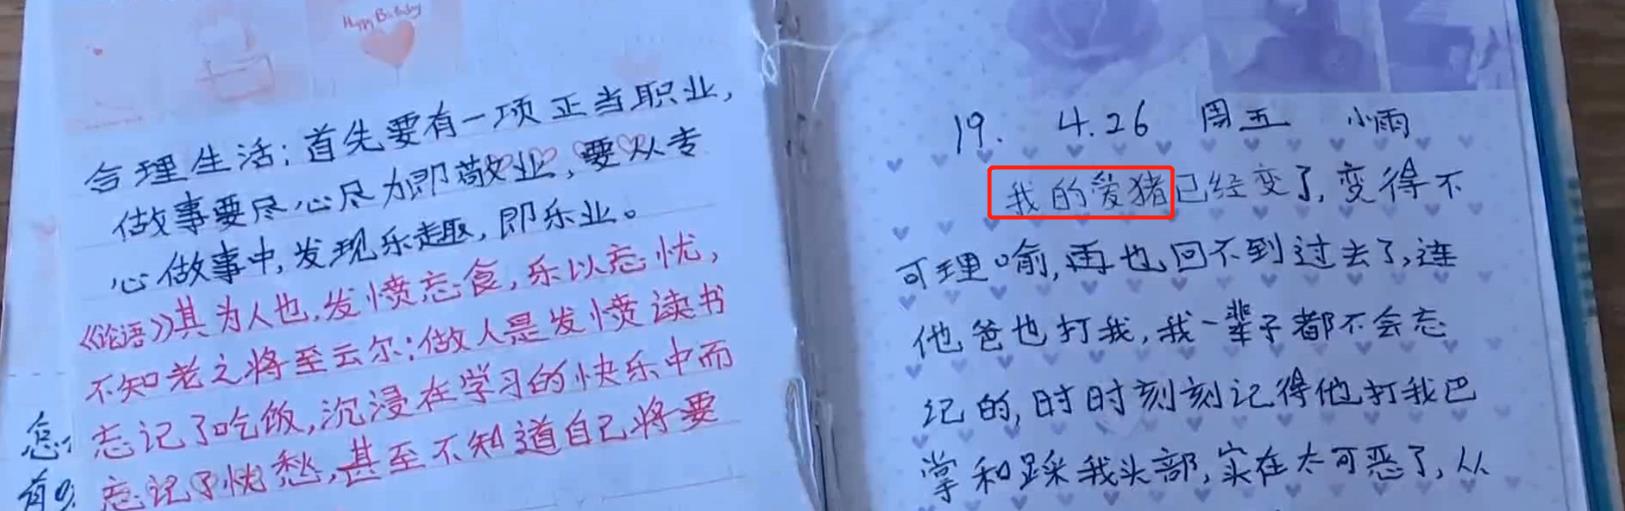 Happy Birthday
合理生活：首先要有一项正当职业，
做事要尽心尽力即敬业，要从专
心做事中，发现乐趣，即乐业。
《论语》其为人也，发愤忘食，乐以忘忧，
不知老之将至云尔：做人是发愤读书
忘记了吃饭，沉浸在学习的快乐中而
忘记了忧愁，甚至不知道自己将要
19. 4.26 周五 小雨
我的爱猪已经变了，变得不
可理喻，再也回不到过去了，连
他爸也打我，我一辈子都不会忘
记的，时时刻刻记得他打我巴
掌和踩我头部，实在太可恶了，从